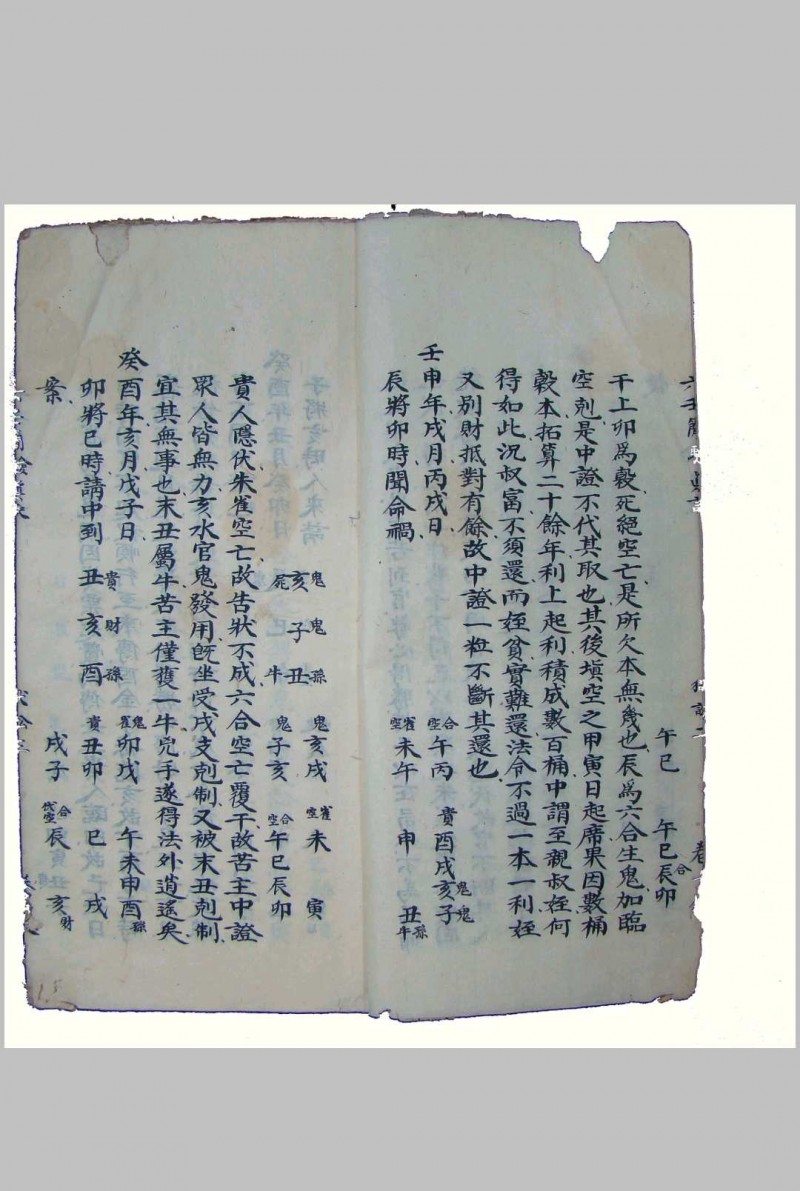 午巳　午巳辰合卯
干上卯為穀死絕空亡是所欠本無幾也辰為六合生鬼加臨
空剋是中證不代其取也其後填空之甲寅日起席果因數桶
穀本拓算二十餘年利上起利積成數百桶中謂至親叔姪何
得如此況叔富不須還而姪貧實難還法令不過一本一利姪
又別財抵對有餘故中證一粒不斷其還也
壬申年戌月丙戌日　合空午丙　貴酉戌亥鬼子鬼
辰將卯時聞命禍　雀空未午　申　丑孫牛
鬼亥屍　鬼亥戌　雀空未　寅
鬼子
孫丑牛　鬼子亥　合空午巳辰卯
貴人隱伏朱雀空亡故告狀不成六合空亡覆干故苦主中證
眾人皆無力亥水官鬼發用既坐受戌支剋制又被末丑剋制
宜其無事也末丑屬牛苦主僅獲一牛兇手遂得法外逍遙矣
癸酉年亥月戊子日　鬼雀卯戌　午未申酉孫
卯將巳時請中到　丑貴亥財酉孫　貴丑卯　巳　戌
案　戌子　合空辰　亥財